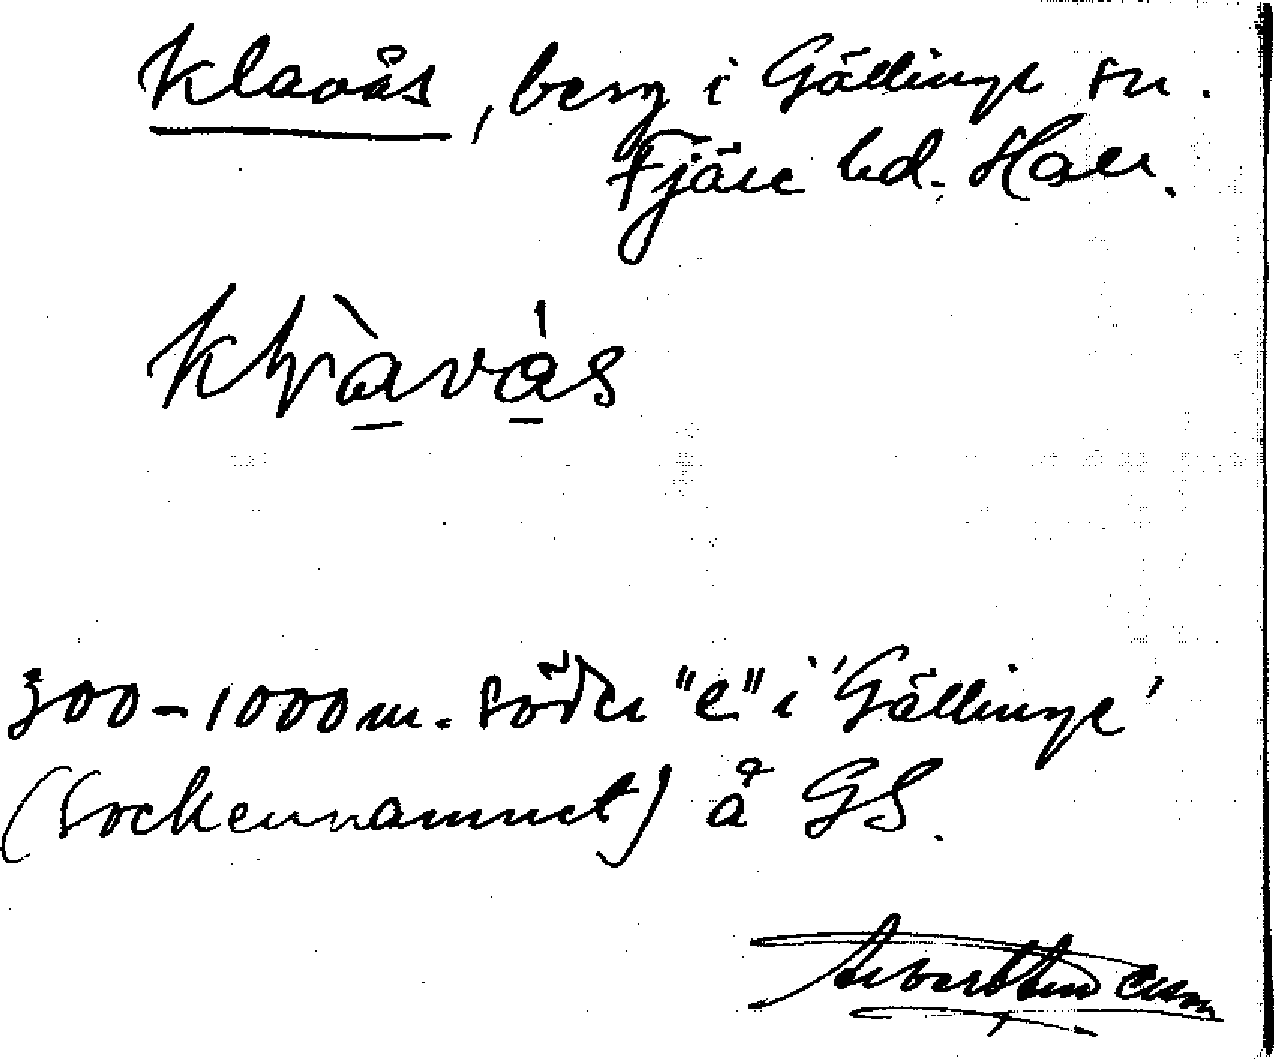 Klavås, berg i Gällinge sn.
Fjäre hd. Hall.
300-1000 m. söder "e" i 'Gällinge'
(Sockennamnet) å GS.